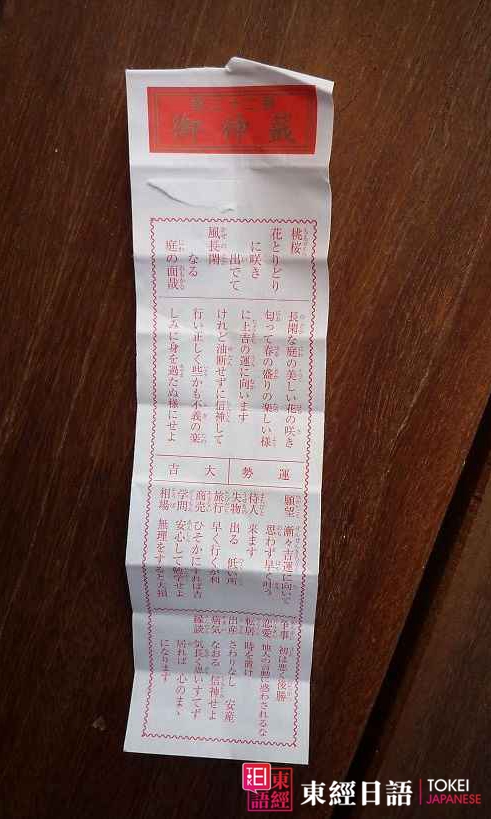 第二十二番
御神籤
桃桜
花とりどり
に咲き
出でて
風長閑
なる
庭の面哉
長閑な庭の美しい花の咲き
匂って春の盛りの楽しい様
に上吉の運に向います
けれど油断せずに信神して
行い正しく些かも不義の楽
しみに身を過たぬ様にせよ
運勢 大吉
願望 漸々吉運に向いて
思わず早く叶う
待人 来ます
失物 出る 低い所
旅行 早く行くが利
商売 ひそかにすれば吉
学問 安心して勉学せよ
相場 無理をすると大損
争事 初は悪く後勝
恋愛 他人の言動に惑わされるな
転居 時を置け
出産 さわりなし 安産
病気 なおる 信神せよ
縁談 気長く思いすてず
居れば 心のまゝ
になります
東經日語
東經日語 TOKEI
JAPANESE